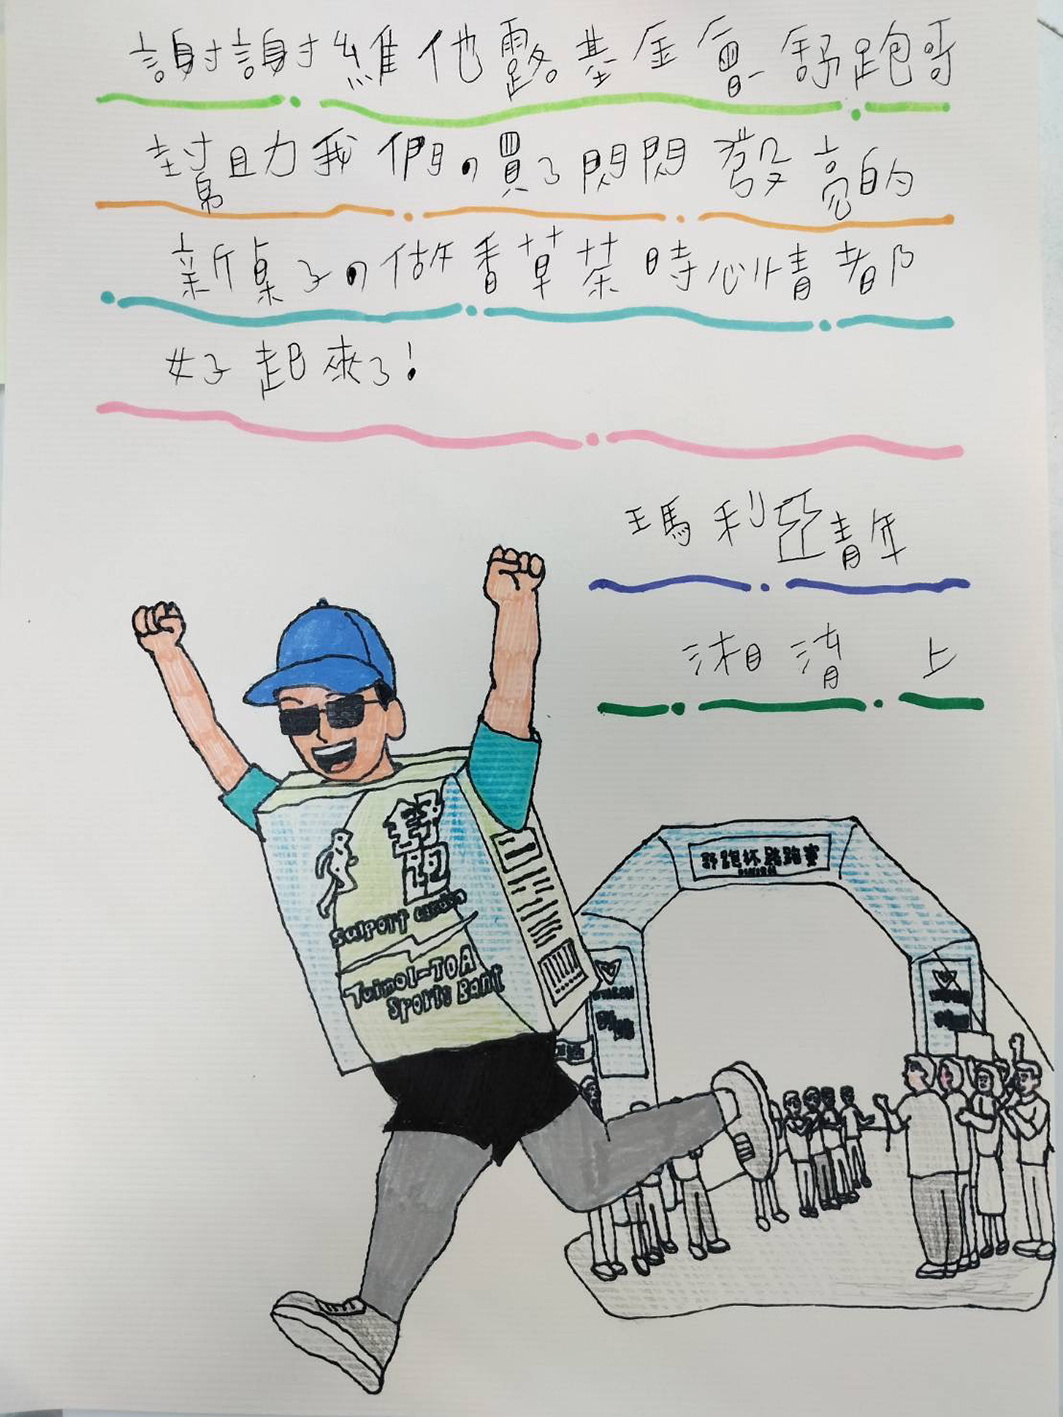 謝謝維他露基金會-舒跑哥
幫助我們,買了閃閃發亮的
新桌子,做香草茶時心情都
好起來了!
瑪利亞青年
湘清 上
舒跑
Sports Bank
舒跑杯路跑賽